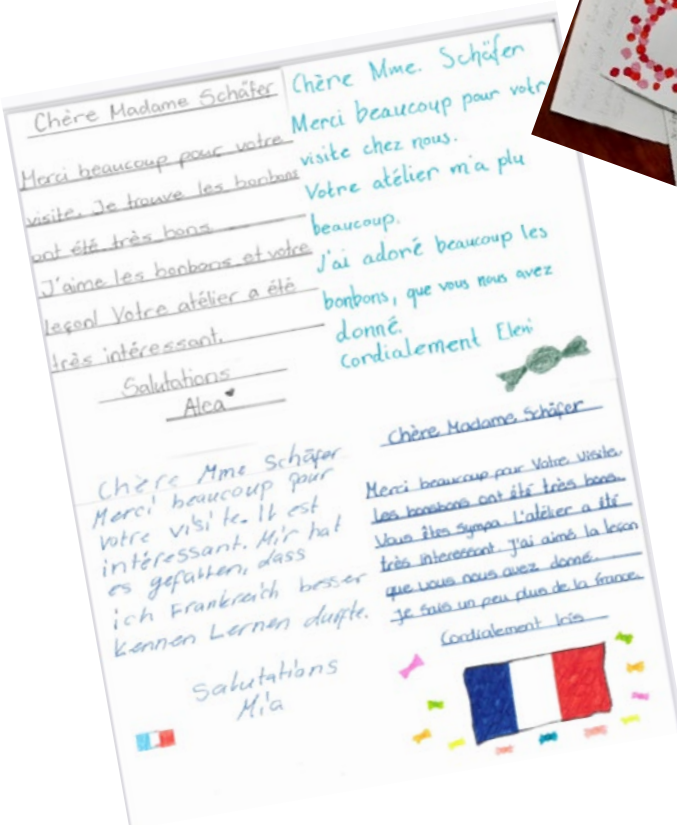 Chère Madame Schäfer
Merci beaucoup pour votre
visite. Je trouve les bonbons
ont été très bons.
J'aime les bonbons et votre
leçon! Votre atélier a été
très intéressant.
Salutations
Alea
Chère Mme. Schäfer
Merci beaucoup pour votr
visite chez nous.
Votre atélier m'a plu
beaucoup.
J'ai adoré beaucoup les
bonbons, que vous nous avez
donné.
Cordialement Eleni
Chère Mme Schäfer
Merci beaucoup pour
votre visite. Il est
intéressant. Mir hat
es gefallen, dass
ich Frankreich besser
kennen Lernen durfte.
Salutations
Mia
Chère Madame Schäfer
Merci beaucoup pour Votre Visite.
Les bonsbons ont été très bons.
Vous êtes sympa. L'atélier a été
très interessant. J'ai aimé la leçon
que vous nous avez donné.
Je sais un peu plus de la france.
Cordialement Iris